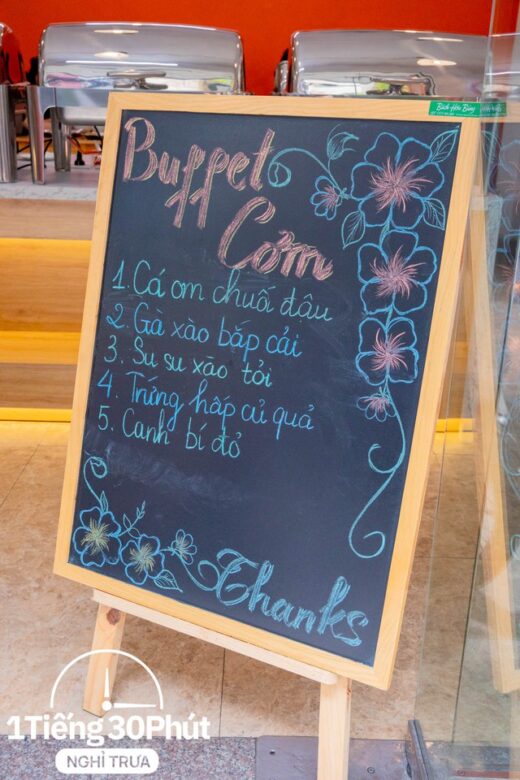 Bách Hóa Bảng
Buffet
Cơm
1. Cá om chuối đậu
2. Gà xào bắp cải
3. Su su xào tỏi
4. Trứng hấp củ quả
5. Canh bí đỏ
Thanks
1Tiếng30Phút
NGHỈ TRƯA